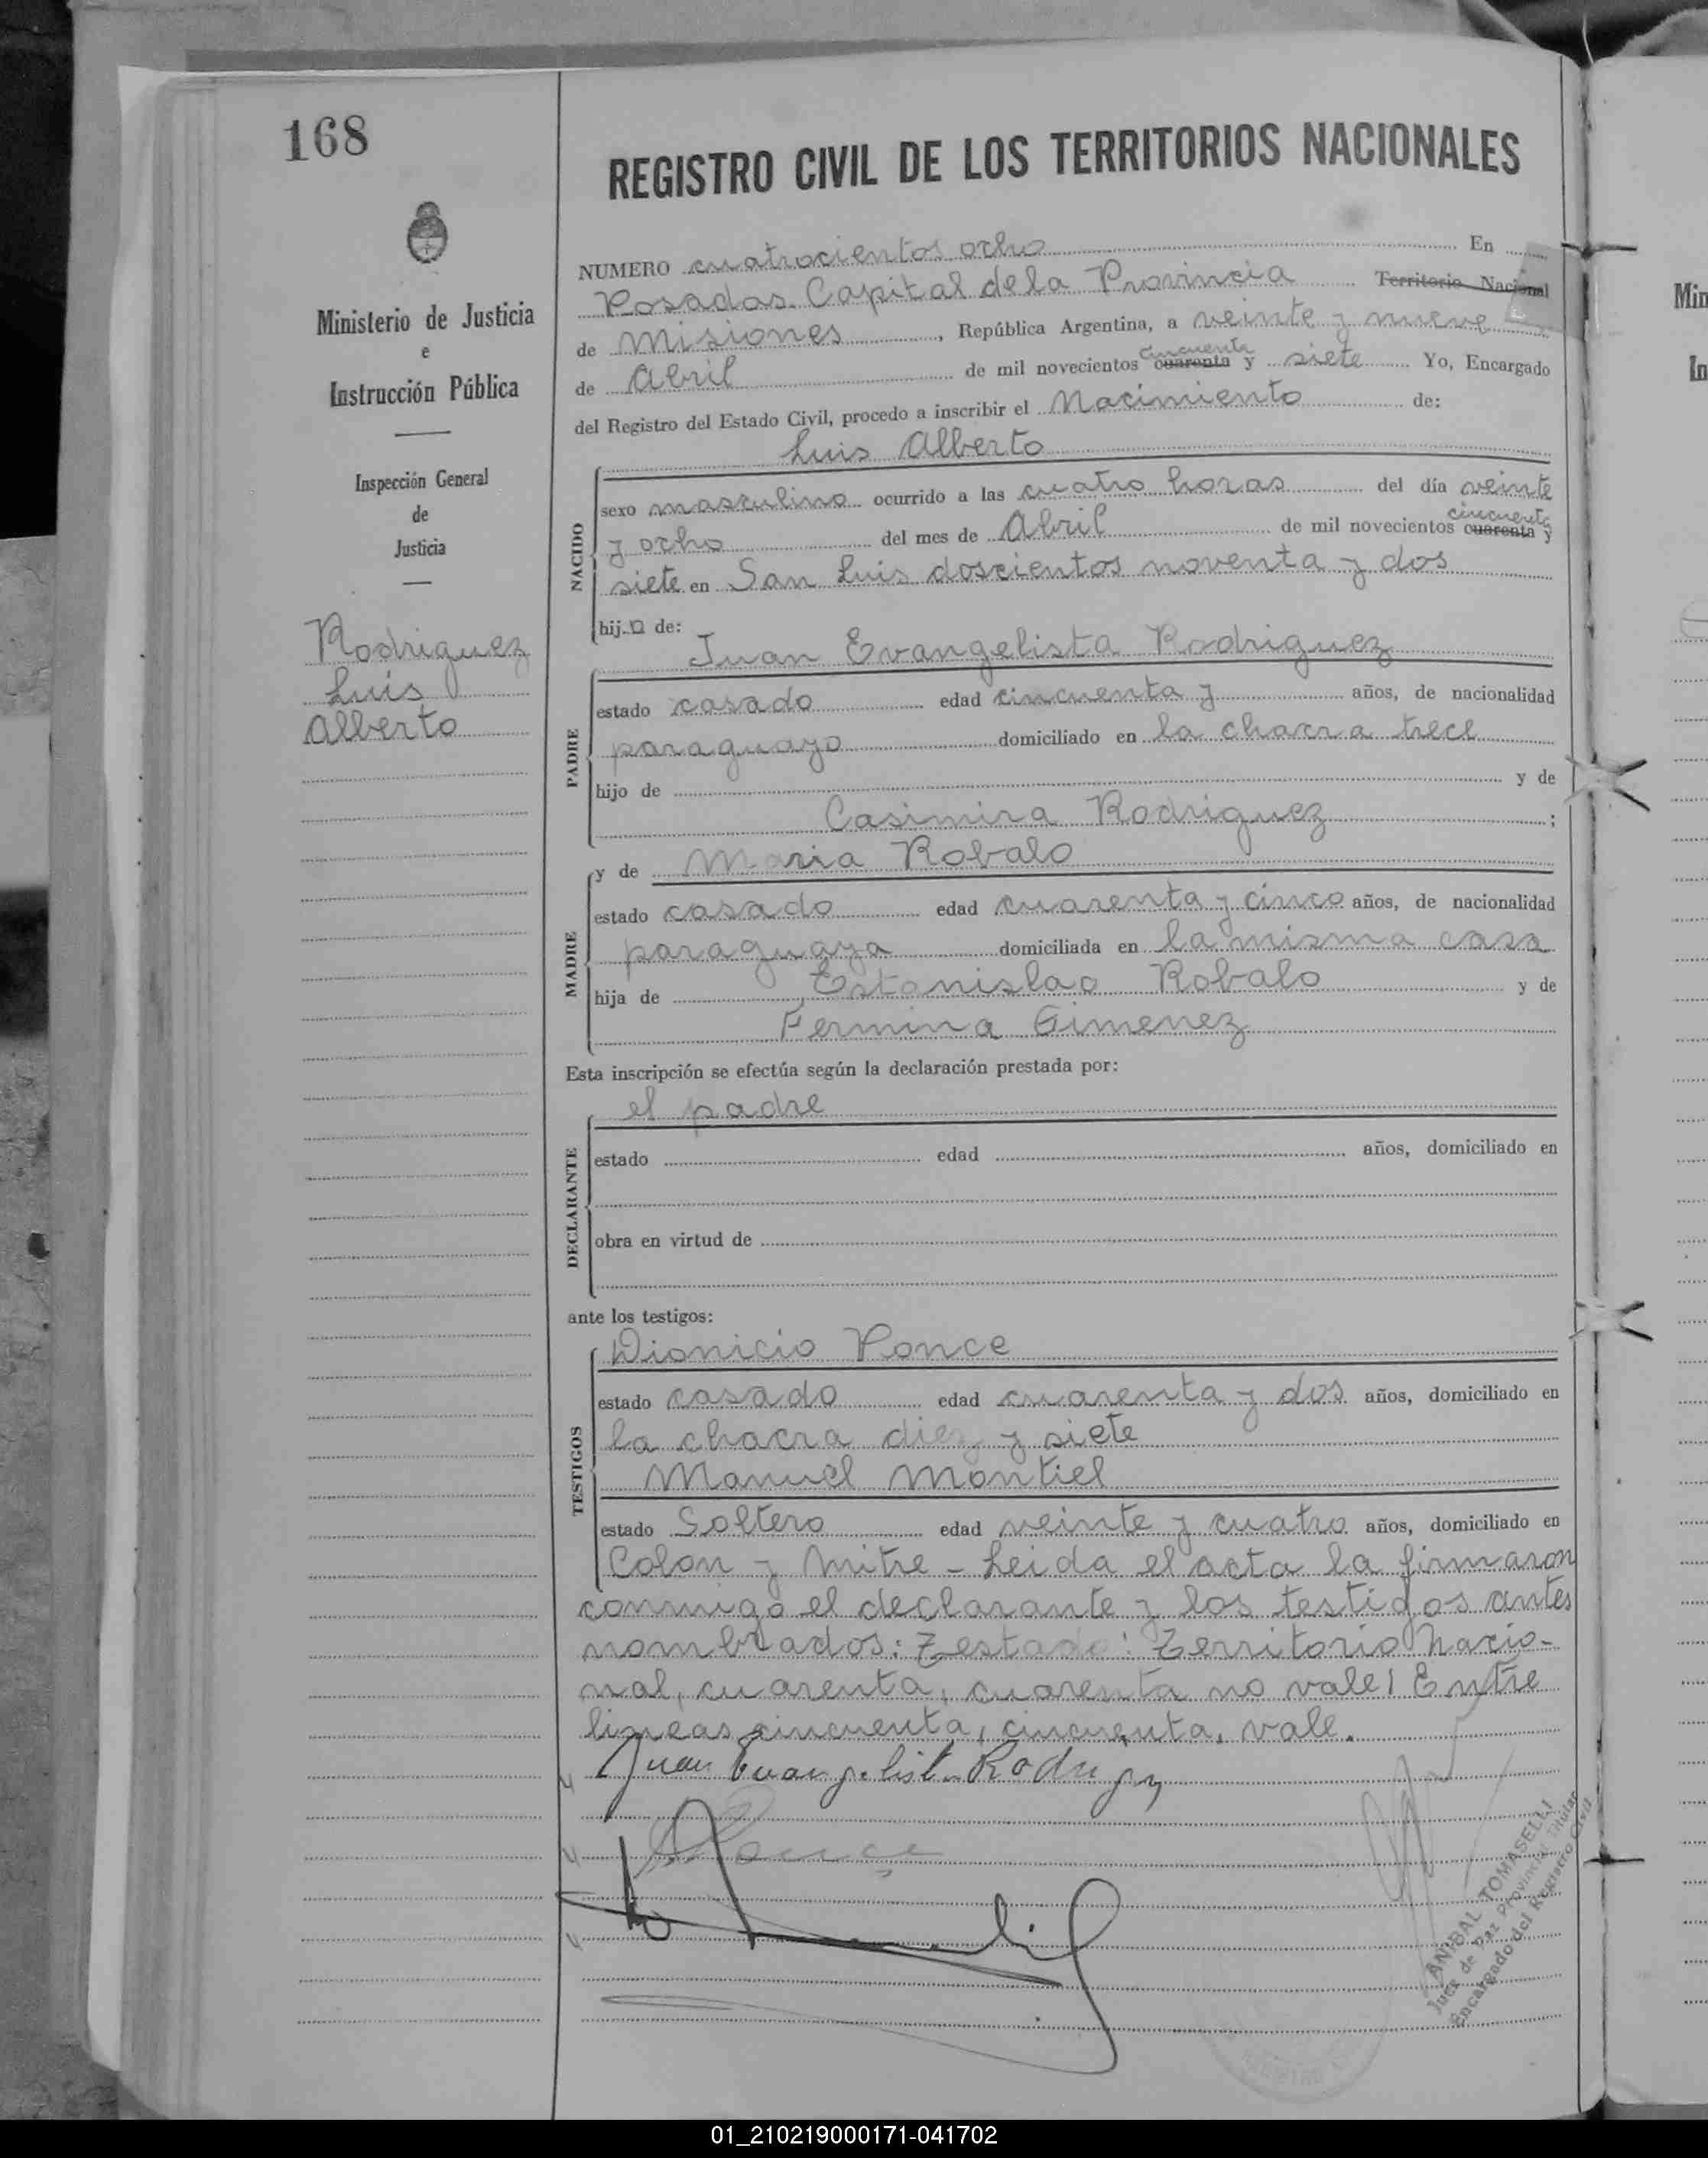 168
REGISTRO CIVIL DE LOS TERRITORIOS NACIONALES
Ministerio de Justicia
e
Instrucción Pública
Inspección General
de
Justicia
Rodriguez
Luis
Alberto
NUMERO cuatrocientos ocho En
Posadas Capital de la Provincia Territorio Nacional
de Misiones, República Argentina, a veinte y nueve
de Abril de mil novecientos cuarenta cincuenta y siete Yo, Encargado
del Registro del Estado Civil, procedo a inscribir el Nacimiento de:
Luis Alberto
NACIDO
sexo masculino ocurrido a las cuatro horas del día veinte
y ocho del mes de Abril de mil novecientos cuarenta cincuenta y
siete en San Luis doscientos noventa y dos
hijo de:
Juan Evangelista Rodriguez
PADRE
estado casado edad cincuenta y años, de nacionalidad
paraguayo domiciliado en la chacra trece
hijo de y de
Casimira Rodriguez ;
y de Maria Robalo
MADRE
estado casado edad cuarenta y cinco años, de nacionalidad
paraguaya domiciliada en la misma casa
hija de Estanislao Robalo y de
Fermina Gimenez
Esta inscripción se efectúa según la declaración prestada por:
el padre
DECLARANTE
estado edad años, domiciliado en
obra en virtud de
ante los testigos:
Dionicio Ponce
TESTIGOS
estado casado edad cuarenta y dos años, domiciliado en
la chacra diez y siete
Manuel Montiel
estado Soltero edad veinte y cuatro años, domiciliado en
Colon y Mitre - Leida el acta la firmaron
conmigo el declarante y los testigos antes
nombrados: Testado: Territorio Nacio-
nal, cuarenta, cuarenta no vale! Entre
lineas cincuenta, cincuenta, vale.
Juan Evangelista Rodriguez
Ponce
ANIBAL TOMASELLI
Juez de Paz Provincial Titular
Encargado del Registro Civil
Min
In
01_210219000171-041702